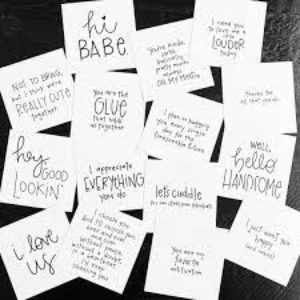 hi
BABE.
I need you
to love me a
little
LOUDER
today.
You're kinda,
sorta,
basically,
pretty much,
always
ON MY MIND.
NOT TO BRAG,
but I think we're
REALLY CUTE
together.
You are the
GLUE
that holds
us together.
thanks for
all that you do.
I plan on bugging
you every single
day for the
foreseeable future.
hey
GOOD
LOOKIN'
I appreciate
EVERYTHING
you do
WELL,
hello
HANDSOME
let's cuddle
i love
us
I choose you.
And I'll choose you
over and over
and over
without pause,
without a doubt,
in a heartbeat.
I'll keep
choosing you.
You are my
favorite
notification
I just want you
happy